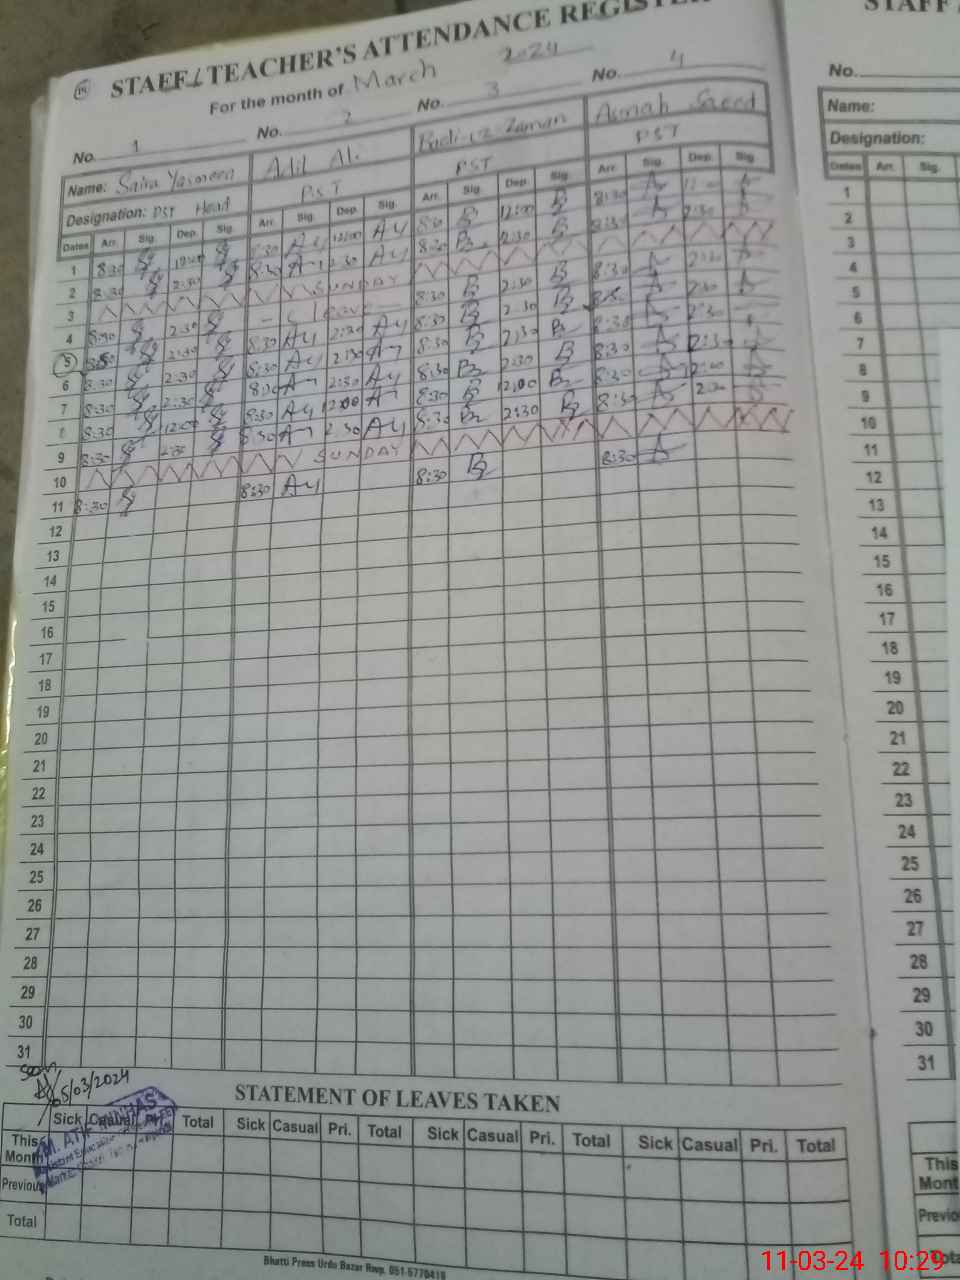 STAFF / TEACHER'S ATTENDANCE REGISTER
For the month of March 2024
No. 1 No. 2 No. 3 No. 4
Name: Saira Yasmeen Adil Ali Badi-uz-Zaman Asmah Saeed
Designation: PST Head PST PST PST
Dates Arr. Sig. Dep. Sig. Arr. Sig. Dep. Sig. Arr. Sig. Dep. Sig. Arr. Sig. Dep. Sig.
1 8:30 12:00 8:30 AY 12:00 AY 8:30 B 12:00 B 8:30 A 12:00 A
2 8:30 2:30 8:30 2:30 AY 8:30 B 2:30 B 8:30 A 2:30 A
3 SUNDAY
4 8:30 2:30 - C leave - 8:30 B 2:30 B 8:30 A 2:30 A
5 8:30 2:30 8:30 AY 2:30 AY 8:30 B 2:30 B A 2:30 A
6 8:30 2:30 8:30 AY 2:30 8:30 B 2:30 B 8:30 A 2:30
7 8:30 2:30 8:30 2:30 AY 8:30 B 2:30 B 8:30 A 2:30 A
8 8:30 12:00 8:30 AY 12:00 8:30 B 12:00 B 8:30 A 12:00 A
9 8:30 2:30 8:30 2:30 AY 8:30 B 2:30 B 8:30 A 2:30
10 SUNDAY
11 8:30 8:30 AY 8:30 B 8:30 A
12
13
14
15
16
17
18
19
20
21
22
23
24
25
26
27
28
29
30
31
Seen
05/03/2024
STATEMENT OF LEAVES TAKEN
Sick Casual Pri. Total Sick Casual Pri. Total Sick Casual Pri. Total Sick Casual Pri. Total
This Month
Previous
Total
M. ATIF MINHAS
Bhatti Press Urdu Bazar Rwp. 051-5770418
STAFF
No.
Name:
Designation:
Dates Arr. Sig.
1
2
3
4
5
6
7
8
9
10
11
12
13
14
15
16
17
18
19
20
21
22
23
24
25
26
27
28
29
30
31
This
Mont
Previo
Tota
11-03-24 10:29